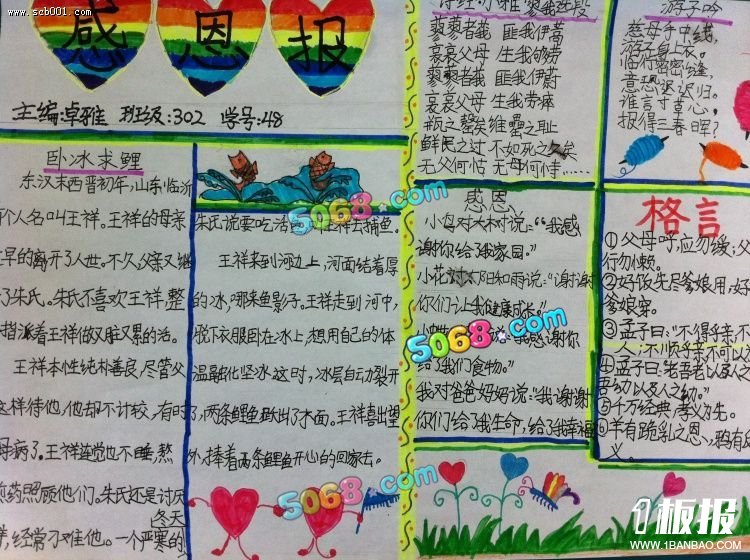 www.scb001.com
感恩报
主编:卓雅 班级:302 学号:48
卧冰求鲤
东汉末西晋初年,山东临沂
个人名叫王祥。王祥的母亲
早的离开了人世。不久,父亲又继
了朱氏。朱氏不喜欢王祥,整
指派着王祥做又脏又累的活。
王祥本性纯朴善良,尽管父
这样待他,他却不计较,有时
母病了。王祥连觉也不睡,熬
煎药照顾他们。朱氏还是讨厌
冬天
经常刁难他。一个严寒的
朱氏说要吃活 王祥去捕鱼。
王祥来到河边上,河面结着厚
的冰,哪来鱼影子。王祥走到河中,
脱下衣服卧在冰上,想用自己的体
温融化坚冰。这时,冰层自动裂开
了,两条鲤鱼跃出了水面。王祥喜出望
外,捧着两条鲤鱼开心的回家去。
诗经·小雅·蓼莪选段
蓼蓼者莪 匪我伊蒿
哀哀父母 生我劬劳
蓼蓼者莪 匪我伊蔚
哀哀父母 生我劳瘁
瓶之罄矣 维罍之耻
鲜民之过 不如死之久矣
无父何怙 无母何恃……
游子吟
慈母手中线,
游子身上衣。
临行密密缝,
意恐迟迟归。
谁言寸草心,
报得三春晖?
感恩
小鸟对大树说:“我感
谢你给了我家园。”
小花 阳和雨说:“谢谢
你们让我健康成长。”
说:“我感谢你
给了我们食物。”
我对爸爸妈妈说:“我谢谢
你们给了我生命,给了我幸福
格言
①父母呼,应勿缓;父
行勿懒。
②好饭先尽爹娘用,好
爹娘穿。
③孟子曰:“不得乎亲,不
人;不顺乎亲,不可以
④孟子曰:老吾老以及人之
吾幼以及人之幼。
⑤千万经典,孝义为先。
⑥羊有跪乳之恩,鸦有
义。
5068.com
5068.com
5068.com
1板报
WWW.1BANBAO.COM